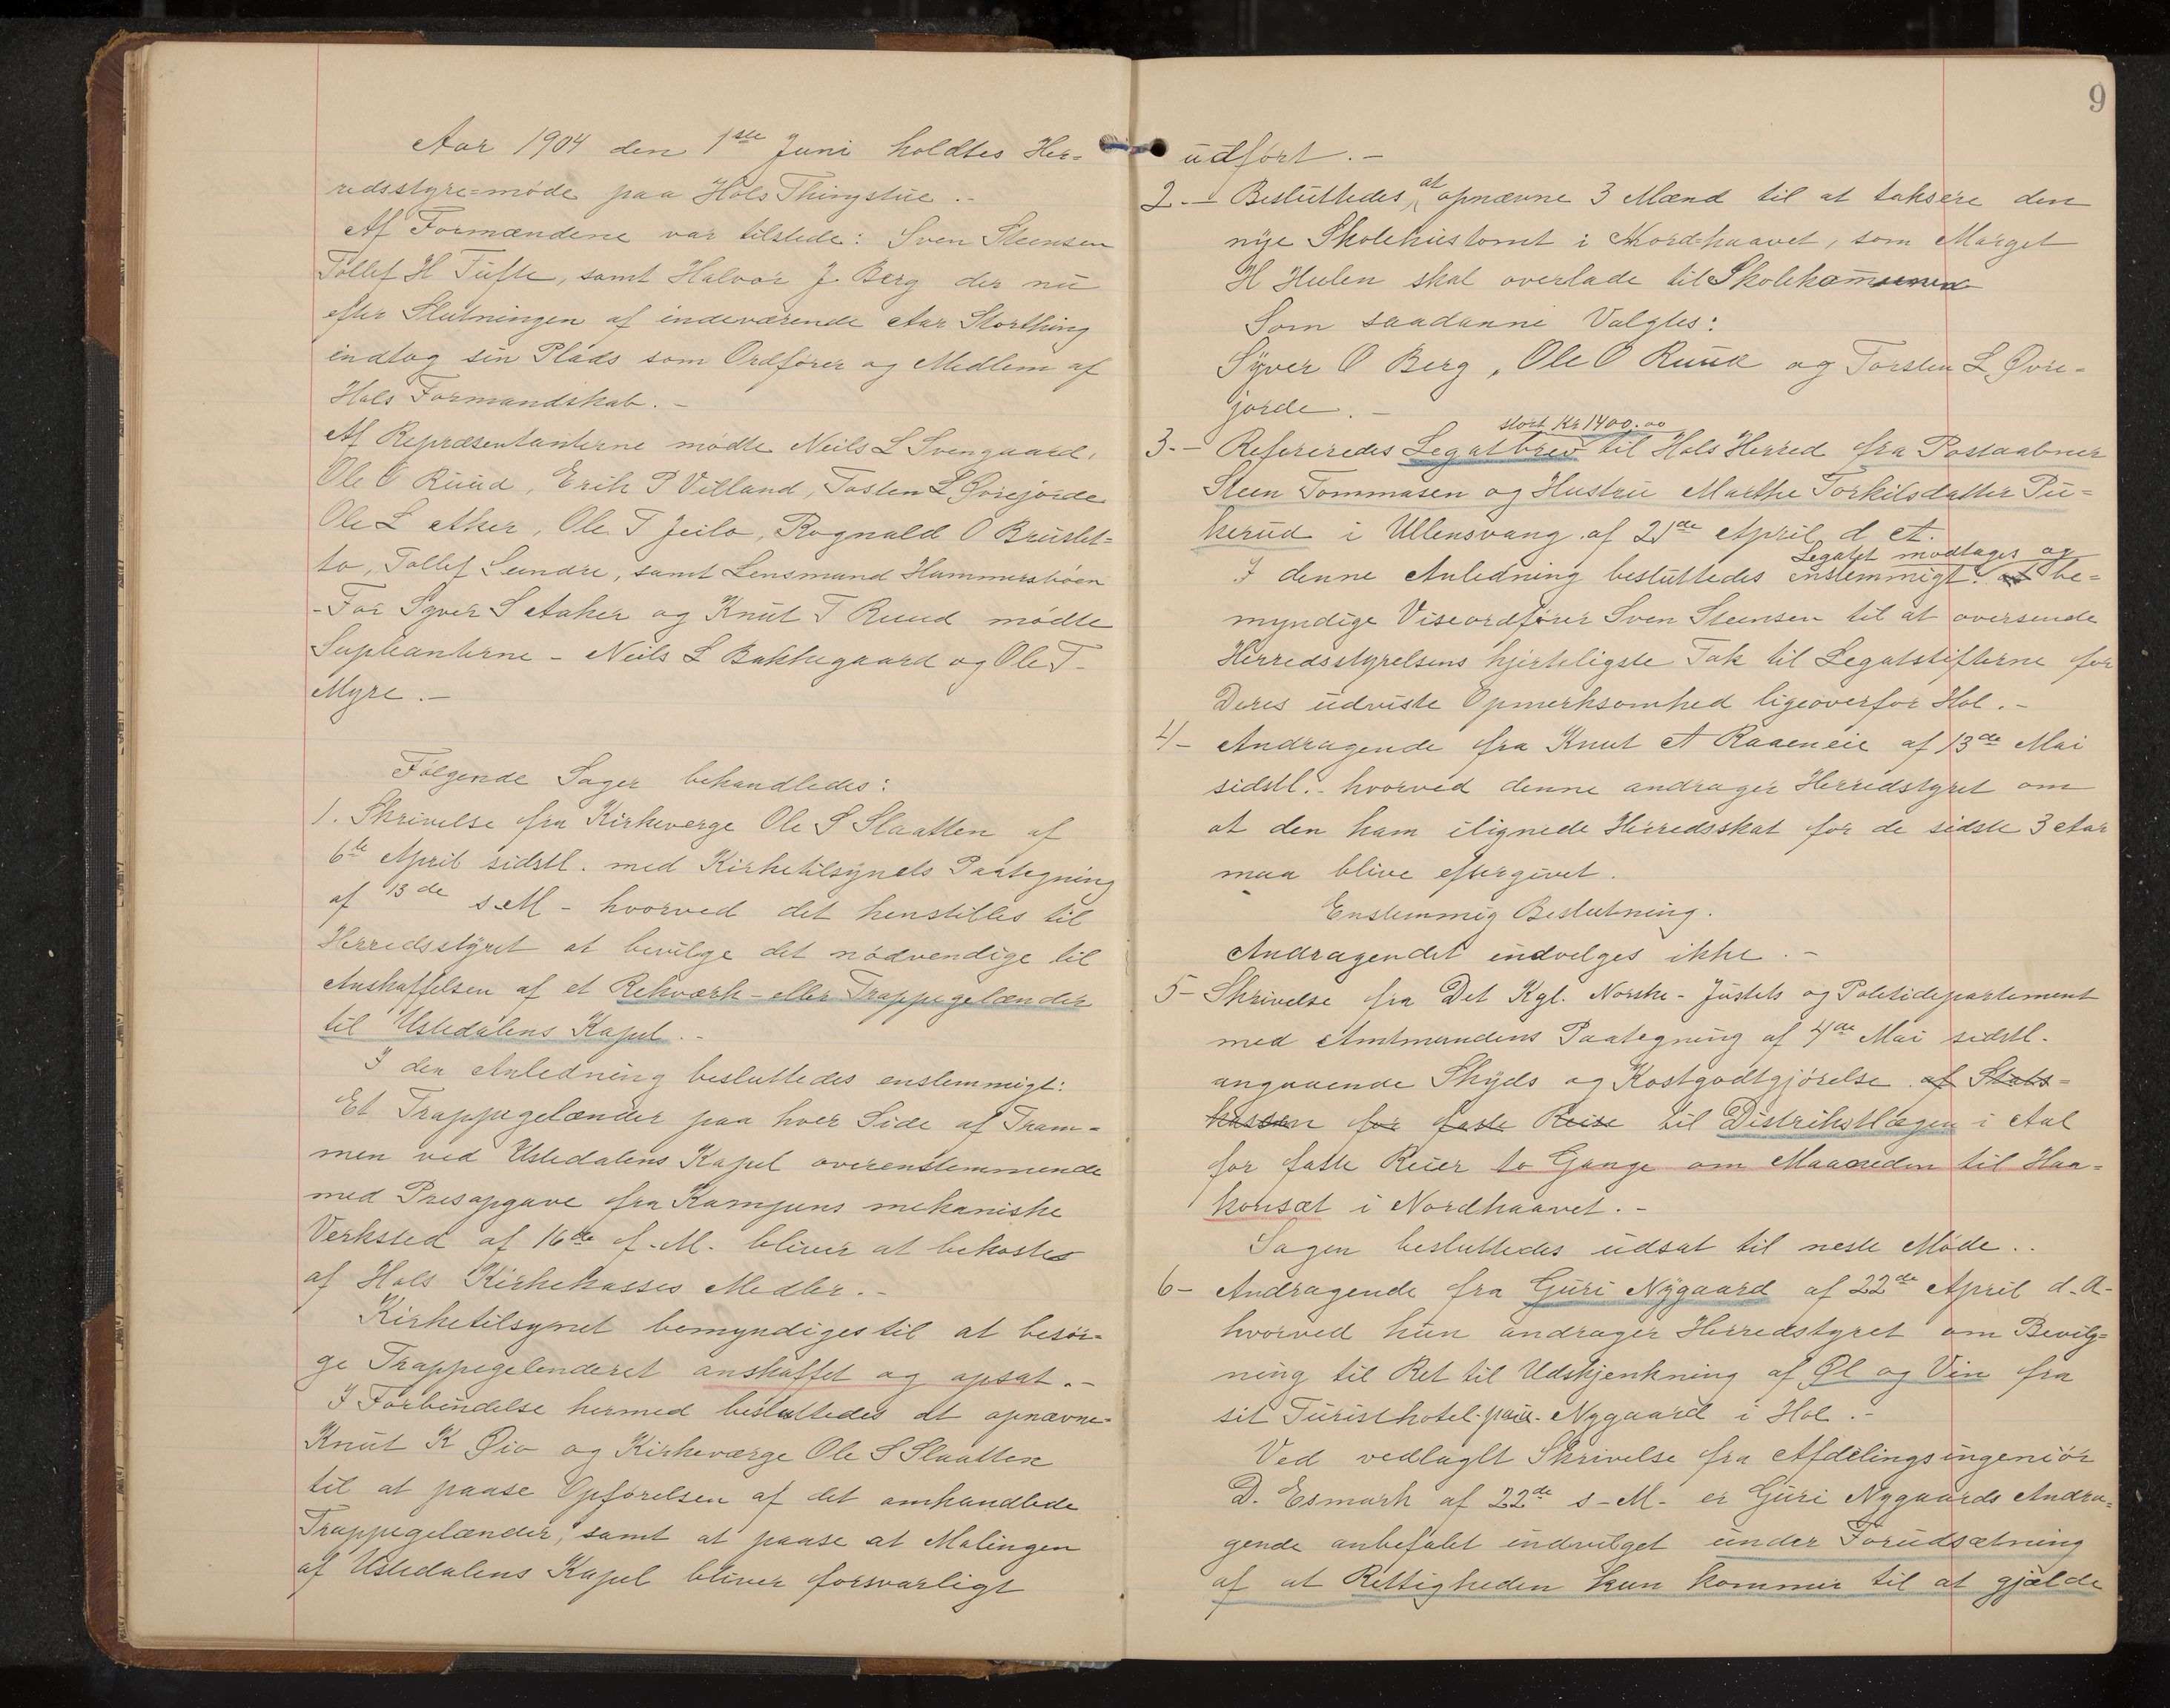 Aar 1904 den 1ste Juni holdtes Her=
redsstyre=møde paa Hols Thingstue.-
Af Formændene var tilstede: Sven Steensen
Tollef H Tufte, samt Halvor J. Berg der nu
efter Slutningen af indeværende Aar Storthing
indtog sin Plads som Ordfører og Medlem af
Hols Formandskab.-
Af Repræsentanterne mødte Neils L Svengaard,
Ole O Ruud, Erik P Villand, Tosten L Øvrejorde
Ole L Aker, Ole T Jeilo, Rognald O Bruslet=
to, Tollef Sundre, samt Lensmand Hammersbøen
-For Syver S Aaker og Knut T Ruud mødte
Supleanterne - Neils L Bakkegaard og Ole T-
Myre.-
Følgende Sager behandledes:
1. Skrivelse fra Kirkeverge Ole S Slaatten af
6te April sidstl. med Kirketilsynets Paategning
af 13de s.M - hvorved det henstilles til
Herredsstyret at bevilge det nødvendige til
Anskaffelsen af et Rekværk-eller Trappegelænder
til Ustedalens Kapel.-
I den Anledning besluttedes enstemmigt:
Et Trappegelænder paa hver Side af Tram=
men ved Ustedalens Kapel overenstemmende
med Prisopgave fra Kampens mekaniske
Verksted af 16de f.M. bliver at bekostes
af Hols Kirkekasses Medler.-
Kirketilsynet bemyndiges til at besør=
ge Trappegelenderet anskaffet og opsat.-
I Forbindelse hermed besluttedes at opnævne=
Knut K Øio og Kirkeværge Ole S Slaatten
til at paase Opførelsen af det omhandlede
Trappegelænder, samt at paase at Malingen
af Ustedalens Kapel bliver forsvarligt
9
udført.-
2.- Besluttedes, at opnævne 3 Mænd til at taksere den
nye Skolehustomt i Nord=haavet, som Marget
H Hulen skal overlade til Skolekommunen
Som saadanne Valgtes:
Syver O Berg, Ole O Ruud og Torsten L Øvre-
jorde.-
stort Kr 1400.00
3.- Refereredes Legatbrev til Hols Herred fra Postaabner
Steen Tommasen og Hustru Marthe Torkilsdatter Pu=
kerud i Ullensvang af 21de April d A.
Legatet modtages og
I denne Anledning besluttedes enstemmigt: at be=
myndige Viseordfører Sven Steensen til at oversende
Herredsstyrelsens hjerteligste Tak til Legatstifterne for
Deres udviste Opmerksomhed ligeoverfor Hol.-
4- Andragende fra Knut A Raaeneie af 13de Mai
sidstl.- hvorved denne andrager Herredstyret om
at den ham ilignede Herredsskat for de sidste 3 Aar
maa blive eftergivet.
Enstemmig Beslutning.
Andragendet indvelges ikke.-
5- Skrivelse fra Det Kgl. Norske-Justets og Politidepartement
med Amtmandens Paategning af 4de Mai sidstl.
angaaende Skyds og Kostgodtgjørelse af Stats=
kassen for faste Reise til Distrikstlægen i Aal
for faste Reier to Gange om Maaneden til Haa=
konsæt i Nordhaavet.-
Sagen besluttedes udsat til neste Møde..
6- Andragende fra Guri Nygaard af 22de April d.A-
hvorved hun andrager Herredstyret om Bevilg=
ning til Ret til Udskjenkning af Øl og Vin fra
sit Turisthotel-paa-Nygaard i Hol.-
Ved vedlaglt Skrivelse fra Afdelingsingeniør
D. Esmark af 22de s-M- er Guri Nygaards Andra=
gende anbefalet indvilget under Forudsætning
af at Rettigheden kun kommer til at gjælde